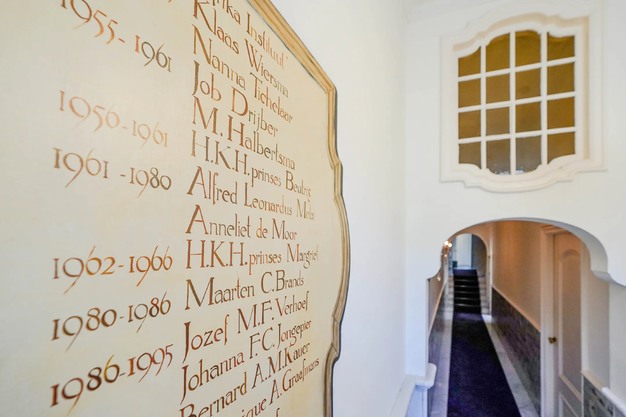 Instituut
Klaas Wiersma
Nanna Tichelaar
1955 - 1961 Job Drijber
M. Halbertsma
1956 - 1961 H.K.H. prinses Beatrix
1961 - 1980 Alfred Leonardus
Anneliet de Moor
1962 - 1966 H.K.H. prinses Margriet
1980 - 1986 Maarten C. Brands
1986 - 1995 Jozef M.F. Verhoef
Johanna F.C. Jongepier
Bernard A.M. Kauer
A. Graafsmans